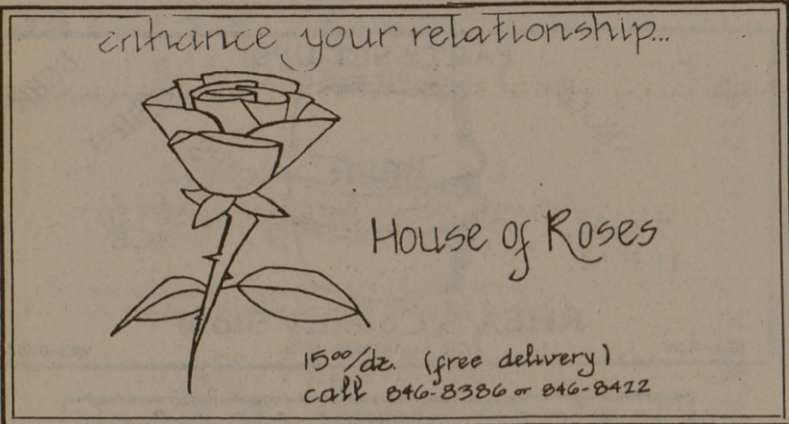 enhance your relationship...
House of Roses
15⁰⁰/dz. (free delivery)
call 846-8386 or 846-8422